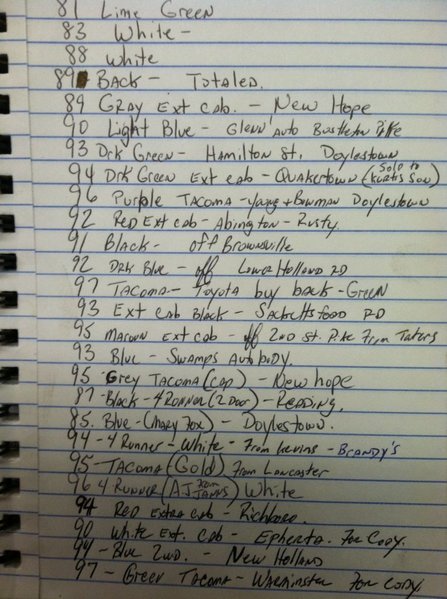 81 Lime Green
83 White -
88 White
89 BACK - Totaled.
89 GRAY Ext cab. - New Hope
90 Light Blue - Glenn Auto Pike
93 Drk Green - Hamilton St. Doylestown
94 Drk Green Ext cab - Quakertown (Sold to Kurtis Son)
96 Purple TACOMA - Young + Bowman Doylestown
92 RED Ext cab - Abington - Rusty.
91 Black - off Brownsville
92 DRK Blue - off Lower Holland RD
97 TACOMA - Toyota buy back - Green
93 Ext cab Black - Sacketts ford RD
95 Maroon Ext cab - off 2ND St. Pike From
93 Blue - Swamps Autobody
95 Grey TACOMA (cap) - New hope
87 - Black - 4 Runner (2 Door) - Reading.
85. Blue - (Mary Fox) - Doylestown.
94 - 4 Runner - White - From Kevins - BRANDY'S
95 - TACOMA (Gold) From Lancaster
96 4 Runner (AJ From JANNS) White
94 RED Extra cab - Richboro.
90 White Ext. Cab - Ephrata. For Cody.
94 - Blue 2wd. - New Holland
97 - Green Tacoma - Warminster For Cody.